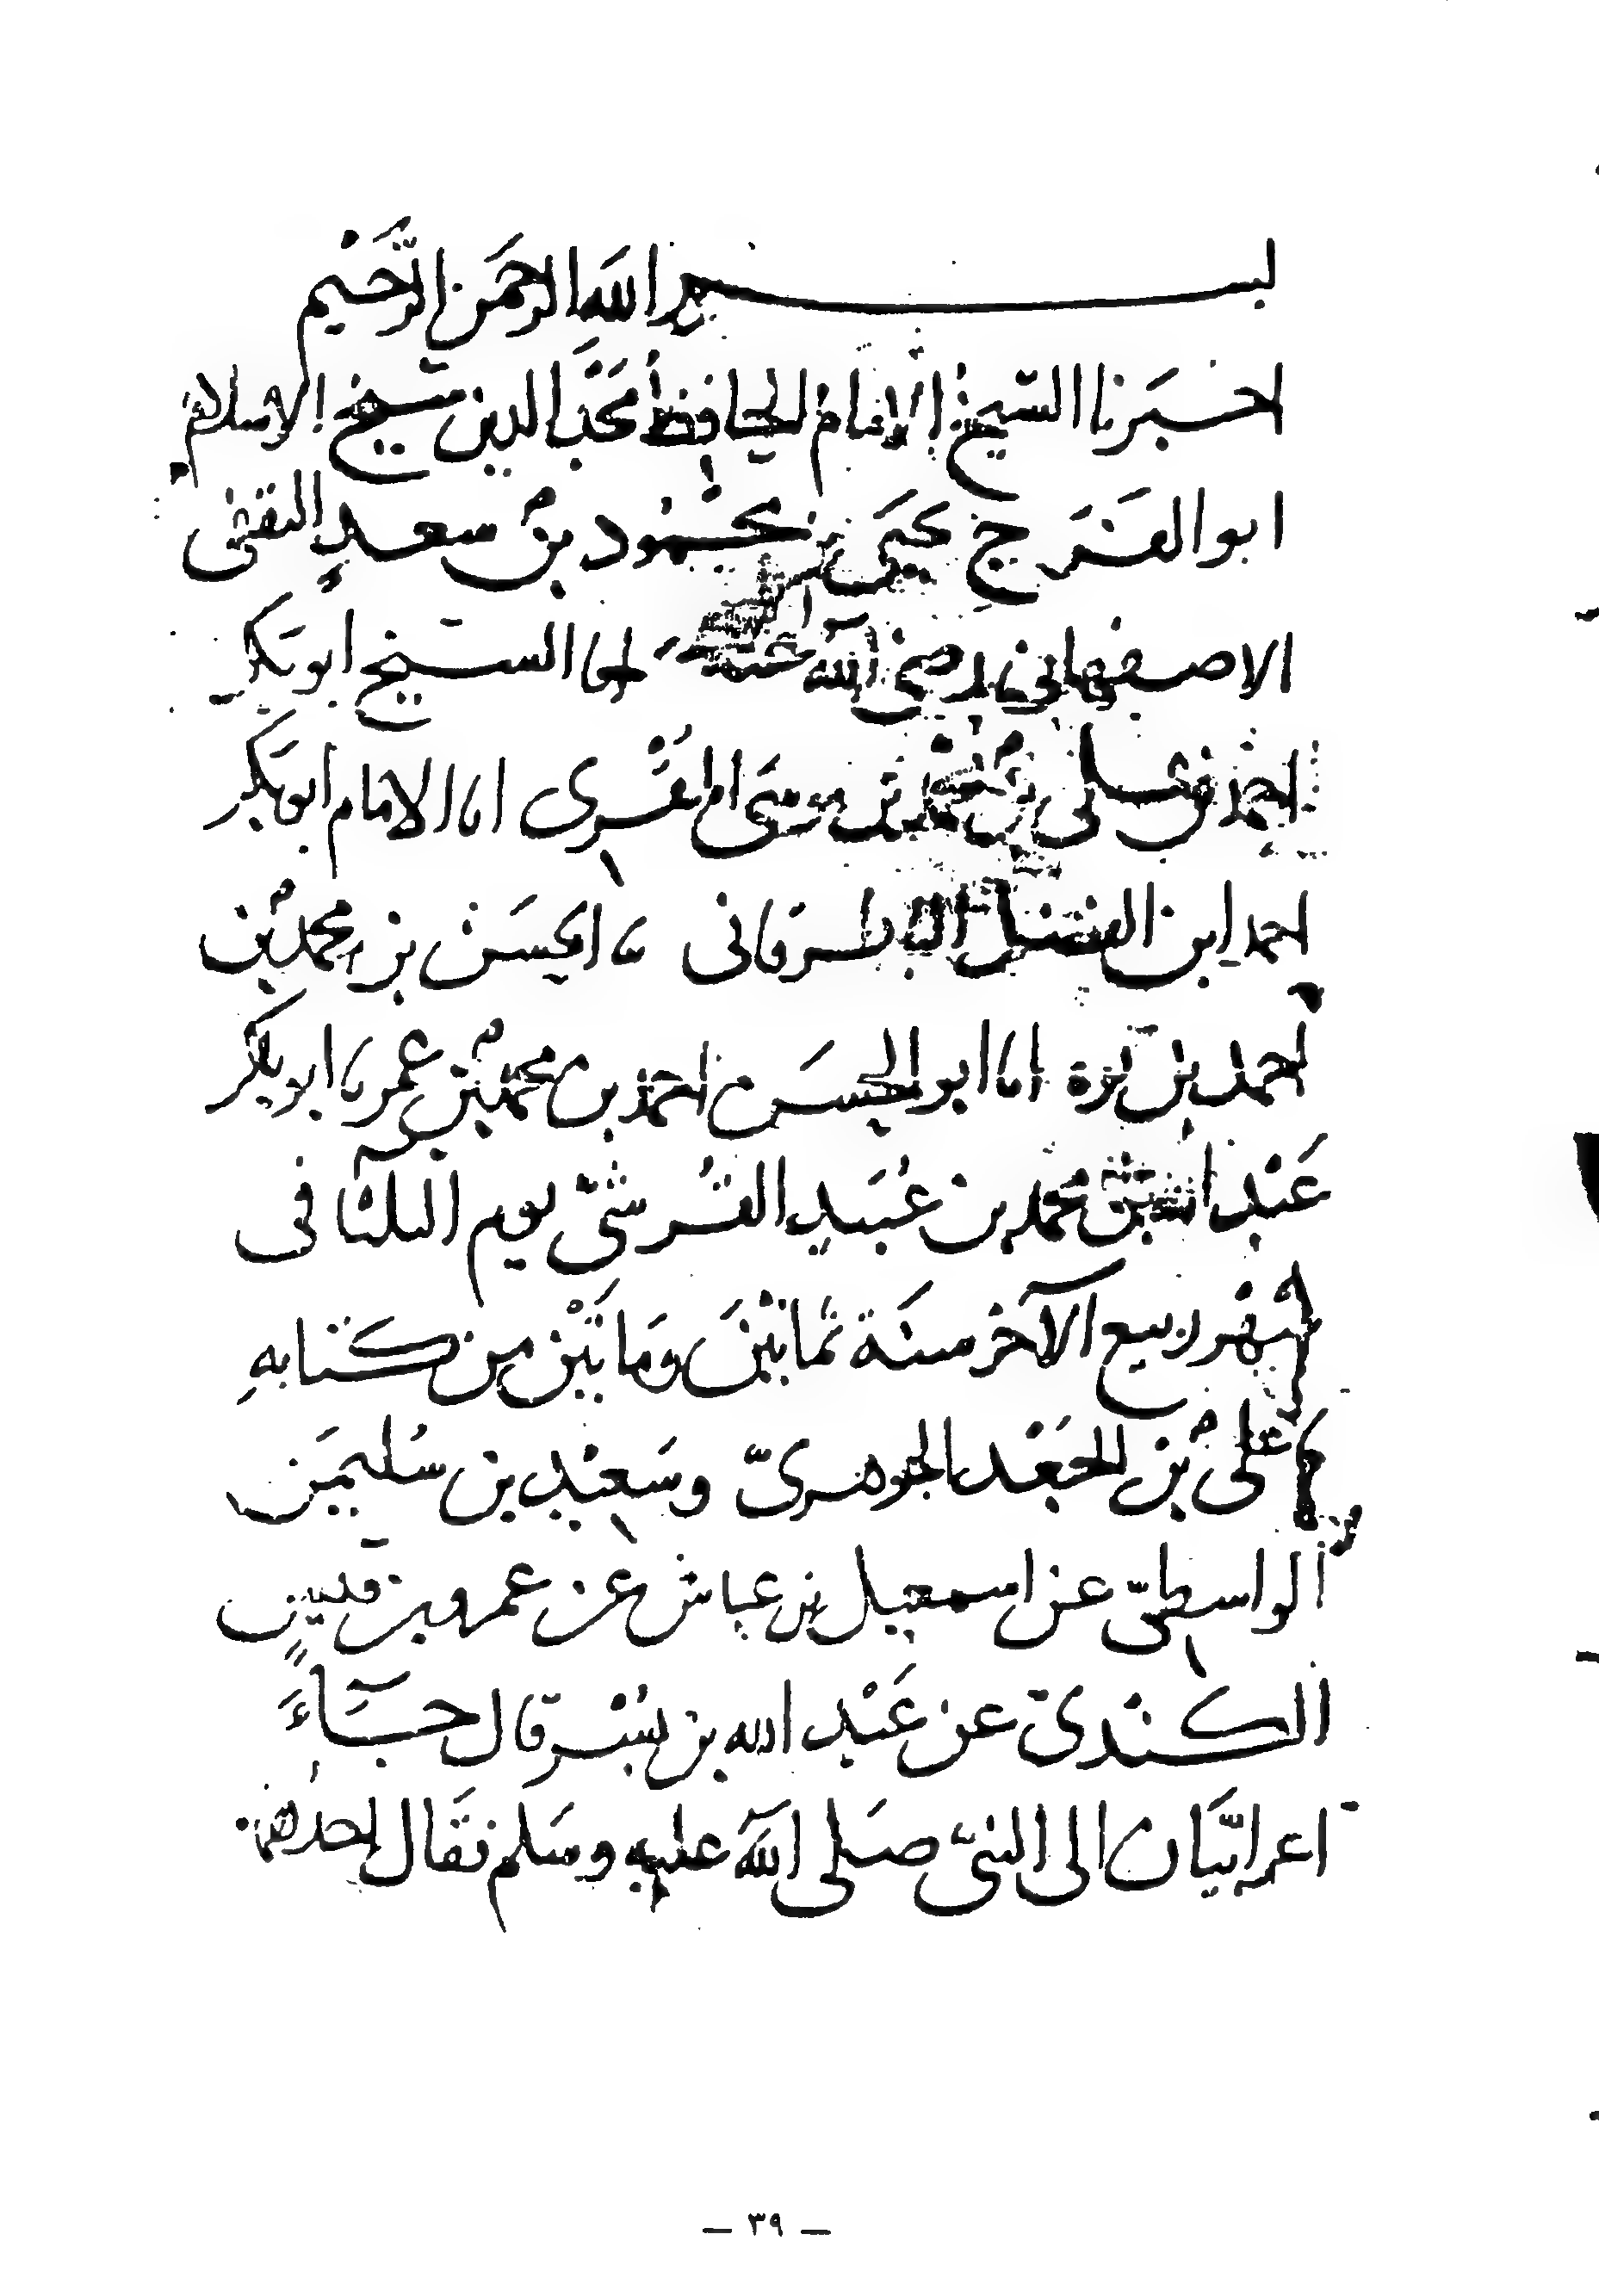 بسم الله الرحمن الرحيم
اخبرنا الشيخ الامام الحافظ محب الدين شيخ الاسلام
ابو الفرج يحيى بن محمود بن سعد الثقفى
الاصفهانى رضى الله عنه الشيخ ابو بكر
احمد بن على بن محمد بن موسى المقرى انا الامام ابو بكر
احمد ابن الفضل الباطرقانى نا الحسن بن محمد بن
احمد بن يزة انا ابو الحسن احمد بن محمد بن عمر نا ابو بكر
عبد الله بن محمد بن عبيد القرشى يوم الثلثا فى
شهر ربيع الآخر سنة ثمانين وماتين من كتابه
نا على بن الجعد الجوهرى وسعيد بن سليمن
الواسطى عن اسمعيل بن عياش عن عمرو بن قيس
الكندى عن عبد الله بن بسر قال جاء
اعرابيان الى النبى صلى الله عليه وسلم فقال احدهما
– ٣٩ –